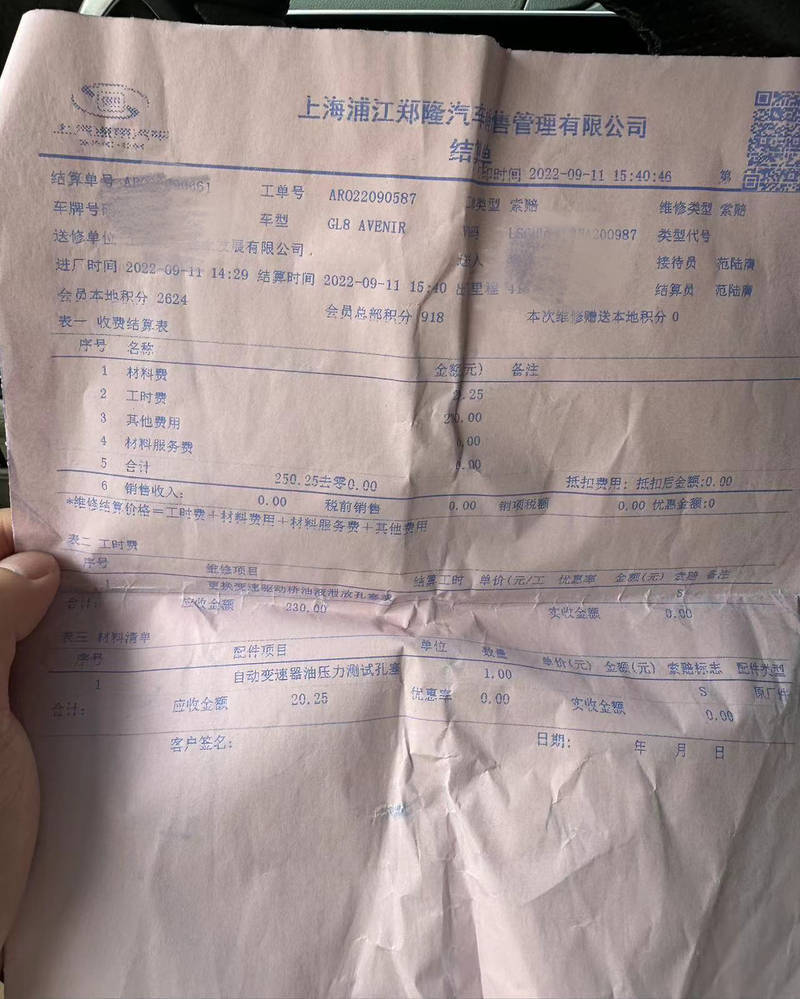 上海浦江郑隆汽车销售管理有限公司
结算
印时间 2022-09-11 15:40:46 第
结算单号 工单号 ARO22090587 类型 索赔 维修类型 索赔
车牌号 车型 GL8 AVENIR 200987 类型代号
送修单位 发展有限公司. 接待员 范陆
进厂时间 2022-09-11 14:29 结算时间 2022-09-11 15:40 出里程 结算员 范陆
会员本地积分 2624 会员总部积分 918 本次维修赠送本地积分 0
表一 收费结算表
序号 名称 金额(元) 备注
1 材料费 .25
2 工时费 .00
3 其他费用 .00
4 材料服务费 .00
5 合计 250.25去零0.00 抵扣费用: 抵扣后金额:0.00
6 销售收入: 0.00 税前销售 0.00 销项税额 0.00 优惠金额:0
*维修结算价格=工时费+材料费用+材料服务费+其他费用
表二 工时费
序号 维修项目 结算工时 单价(元/工 优惠率 金额(元) 索赔 备注
1 更换变速驱动桥油液泄放孔塞 S
合计: 应收金额 230.00 实收金额 0.00
表三 材料清单
序号 配件项目 单位 数量 单价(元) 金额(元) 索赔标志 配件类型
1 自动变速器油压力测试孔塞 1.00 S 原厂件
合计: 应收金额 20.25 优惠率 0.00 实收金额 0.00
客户签名: 日期: 年 月 日